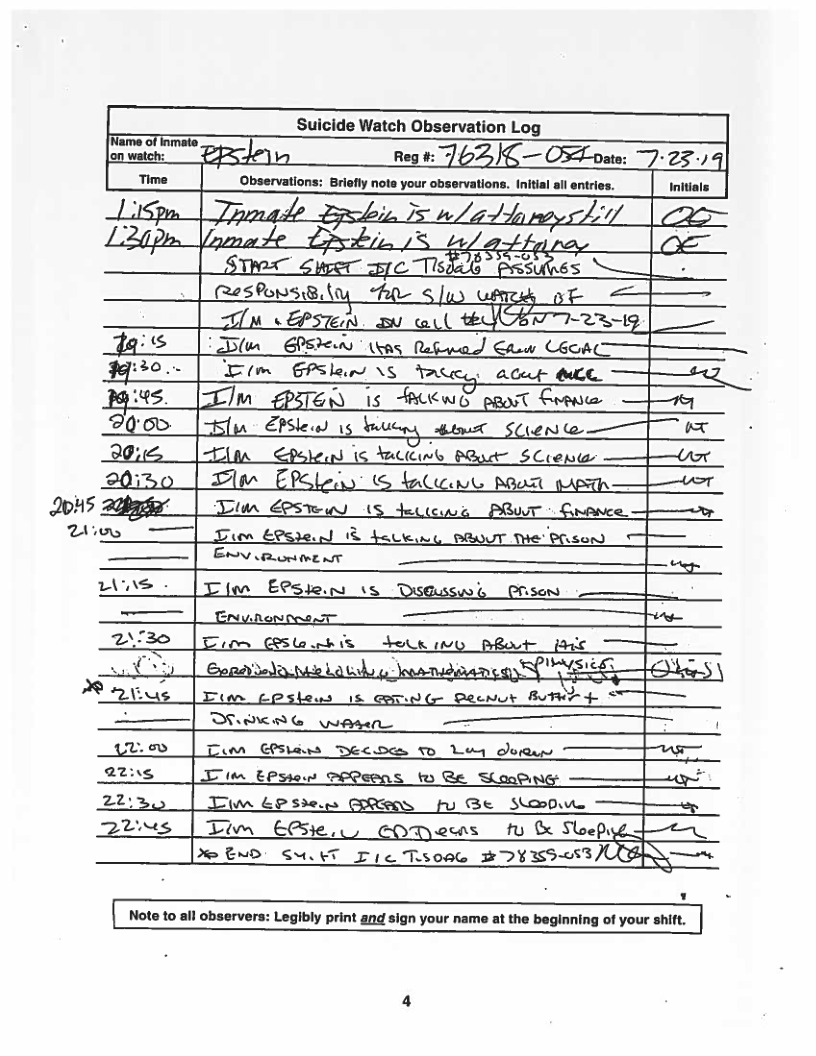 Suicide Watch Observation Log
Name of Inmate on watch: Epstein Reg #: 76318-054 Date: 7-23-19
Time Observations: Briefly note your observations. Initial all entries. Initials
1:15pm Inmate Epstein is w/ attorney still OE
1:30pm Inmate Epstein is w/ attorney OE
#78359-053
START SHIFT I/C Tisdale ASSUMES
RESPONSIBility for S/W WATCH OF
I/M EPSTEIN ON cell ON 7-23-19
19:15 I/M EPSTEIN HAS Returned from LEGIAL
19:30 I/M EPStein IS about
19:45 I/M EPSTEIN IS tALKING ABOUT FINANCE
20:00 I/M EPStein IS talking about SCIENCE
20:15 I/M EPStein IS talkING ABout SCIENCE
20:30 I/M EPStein IS talkING ABout MATH
20:45 I/M EPSTEIN IS talkING ABOUT FINANCE
21:00 I/M EPStein IS talkING ABOUT the Prison
ENVIRONMENT
21:15 I/M EPStein IS DISCUSSING Prison
ENVIRONMENT
21:30 I/M EPStein is talkING ABout His
MATHEMATICS PHYSICS
21:45 I/M EPStein IS EATING PEANUt Butter +
DrINKING WATER
22:00 I/M EPStein DECIDES TO Lay down
22:15 I/M EPStein APPEARS to BE SLEEPING
22:30 I/M EPStein APPEARS to BE SLeePING
22:45 I/M EPStein APPears to Be SleePing
END SHIFT I/C TISDALE #78359-053
Note to all observers: Legibly print and sign your name at the beginning of your shift.
4